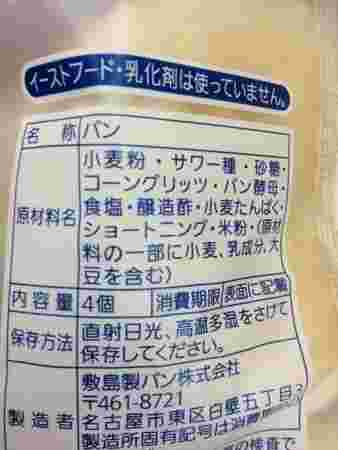 イーストフード・乳化剤は使っていません。
名 称 パン
小麦粉・サワー種・砂糖・
コーングリッツ・パン酵母・
原材料名 食塩・醸造酢・小麦たんぱく・
ショートニング・米粉・(原材
料の一部に小麦、乳成分、大
豆を含む)
内容量 4個 消費期限 表面に記載
保存方法 直射日光、高温多湿をさけて
保存してください。
敷島製パン株式会社
〒461-8721
製造者 名古屋市東区白壁五丁目3
製造所固有記号は消費期限